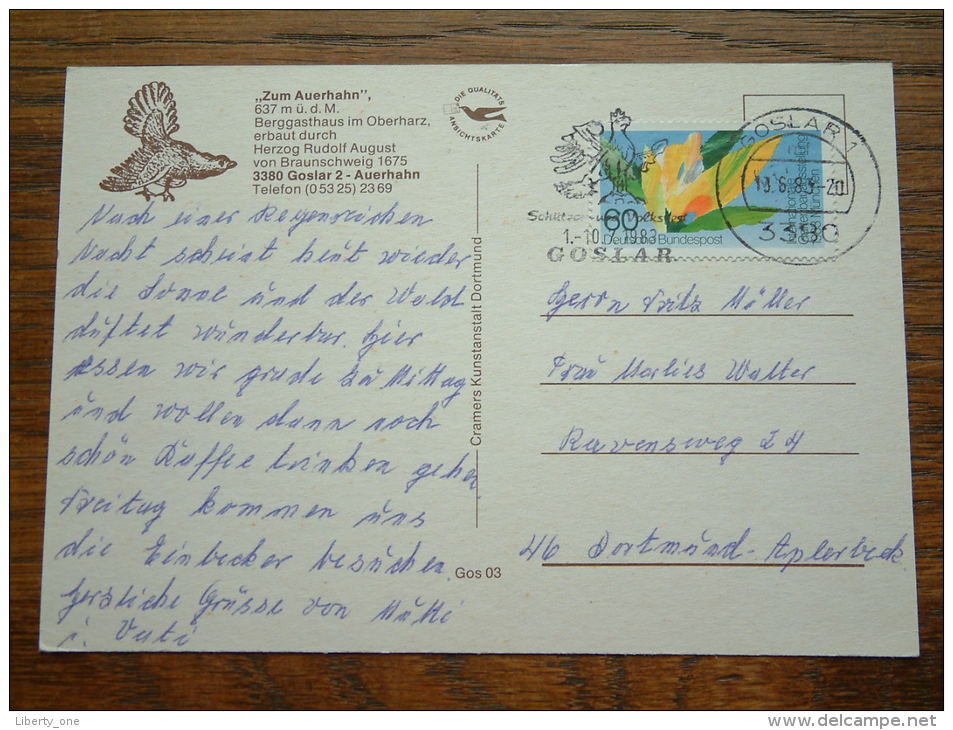 „Zum Auerhahn",
637 m ü. d. M.
Berggasthaus im Oberharz,
erbaut durch
Herzog Rudolf August
von Braunschweig 1675
3380 Goslar 2 - Auerhahn
Telefon (05325) 2369
DIE QUALITÄTS
ANSICHTSKARTE
Nach einer Regensreichen
Nacht scheint heut wieder
die Sonne und der Wald
duftet wunderbar. hier
essen wir grade zu Mittag
und wollen dann noch
schön Kaffee trinken gehen
Freitag kommen uns
die Einbecker besuchen.
herzliche Grüsse von Mutti
u. Vati
Cramers Kunstanstalt Dortmund
Gos 03
Schützen- und Volksfest
1.-10. 1983
GOSLAR
60
Deutsche Bundespost
Internationale
Gartenbauausstellung
München 83
GOSLAR 1
3380
Herrn Fritz Müller
Frau Marlies Walter
Ravensweg 24
46 Dortmund-Aplerbeck
Liberty_one
http://www.delcampe.net